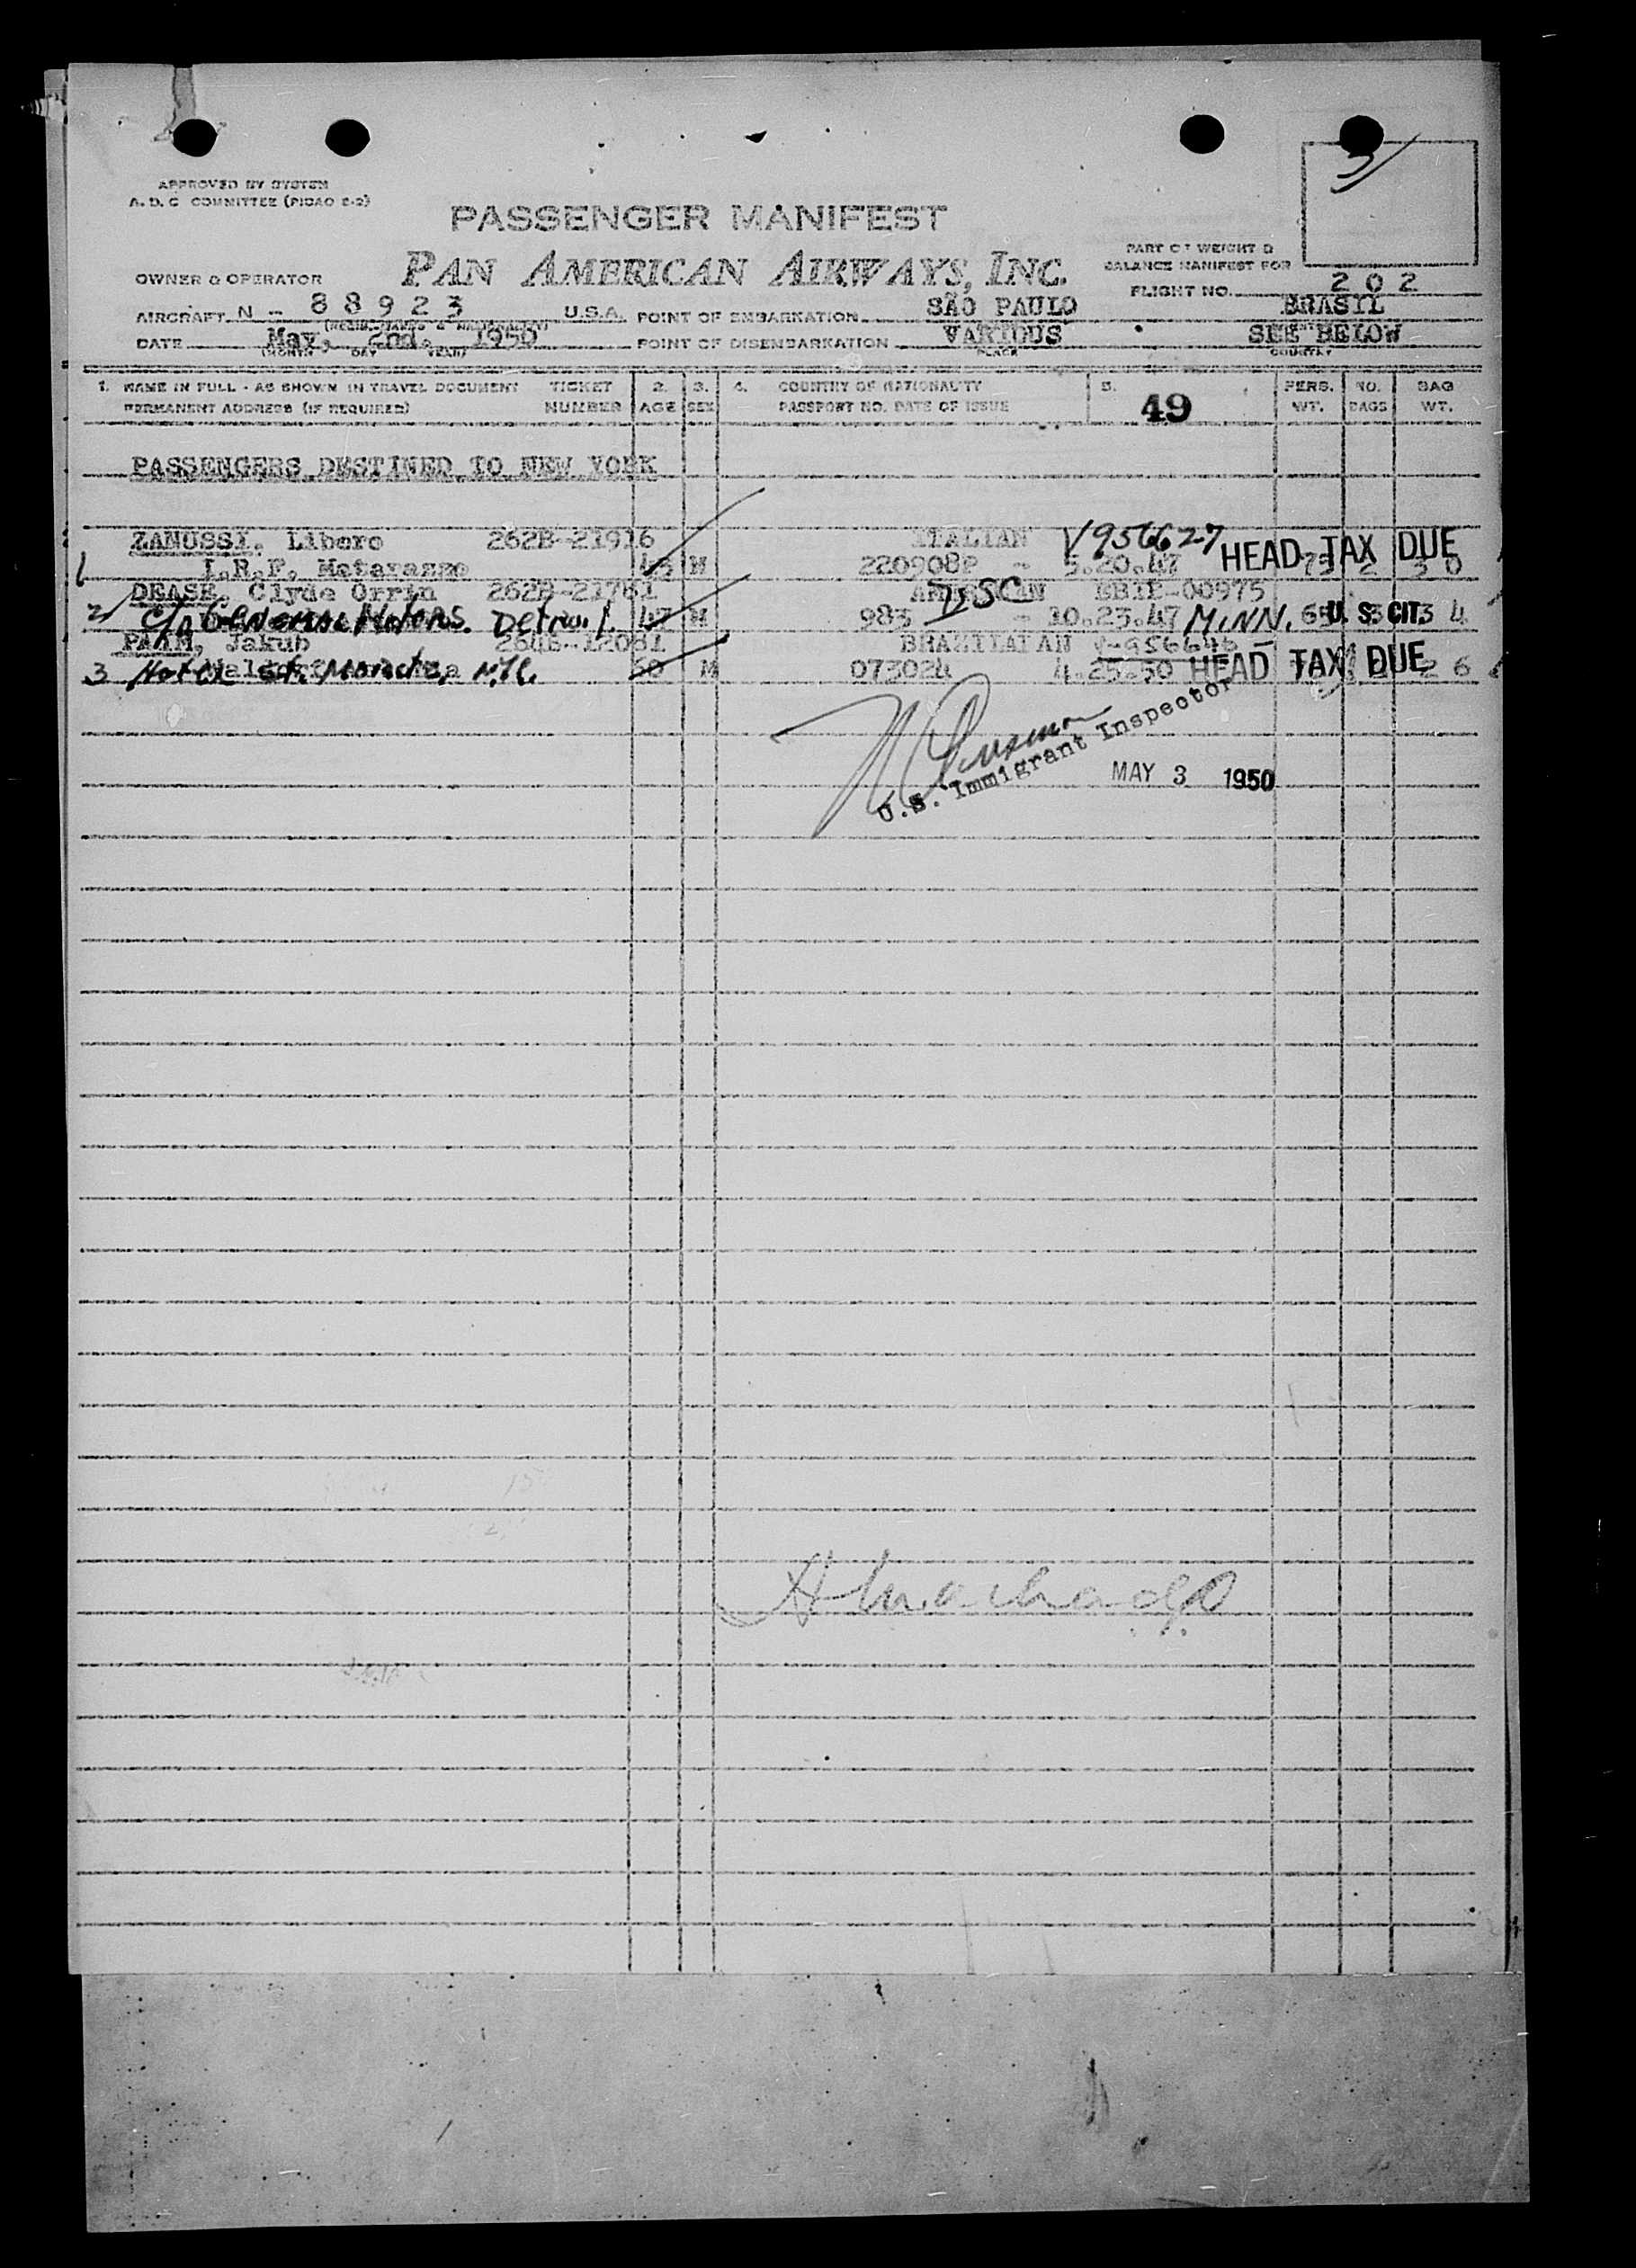 APPROVED BY SYSTEM
A. D. C COMMITTEE (PICAO 2-2)
3/
PASSENGER MANIFEST
PAN AMERICAN AIRWAYS, INC.
PART OF WEIGHT &
BALANCE MANIFEST FOR
OWNER & OPERATOR
FLIGHT NO. 202
AIRCRAFT N - 88923 U.S.A. POINT OF EMBARKATION SÃO PAULO BRASIL
DATE May, 2nd. 1950 POINT OF DISEMBARKATION VARIOUS SEE BELOW
(MONTH DAY YEAR) PLACE COUNTRY
1. NAME IN FULL - AS SHOWN IN TRAVEL DOCUMENT TICKET 2. 3. 4. COUNTRY OF NATIONALITY 5. PERS. NO. BAG
PERMANENT ADDRESS (IF REQUIRED) NUMBER AGE SEX PASSPORT NO. DATE OF ISSUE 49 WT. BAGS WT.
PASSENGERS DESTINED TO NEW YORK
ZANUSSI, Libero 262B-21916 ITALIAN V956627 HEAD TAX DUE
1 I.R.F. Matarazzo M 220908P - 5.20.47 2 30
DEASE, Clyde Orrin 262B-21761 AMERICAN EBIE-00975
2 c/o General Motors. Detroit. 47 M 983 - 10.23.47 MINN. U. S. CIT. 34
PAAM, Jakub 264B-12081 BRAZILAIAN V-956646
3 Hotel St. Moritz, N.Y. 60 M 073024 4.25.50 HEAD TAX DUE 26
U.S. Immigrant Inspector
MAY 3 1950